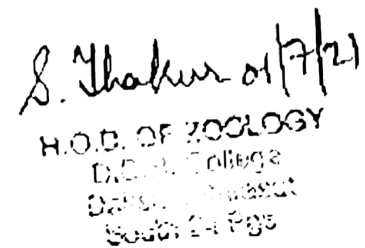 S. Thakur 01/7/21
H.O.D. OF ZOOLOGY
College
South 24 Pgs